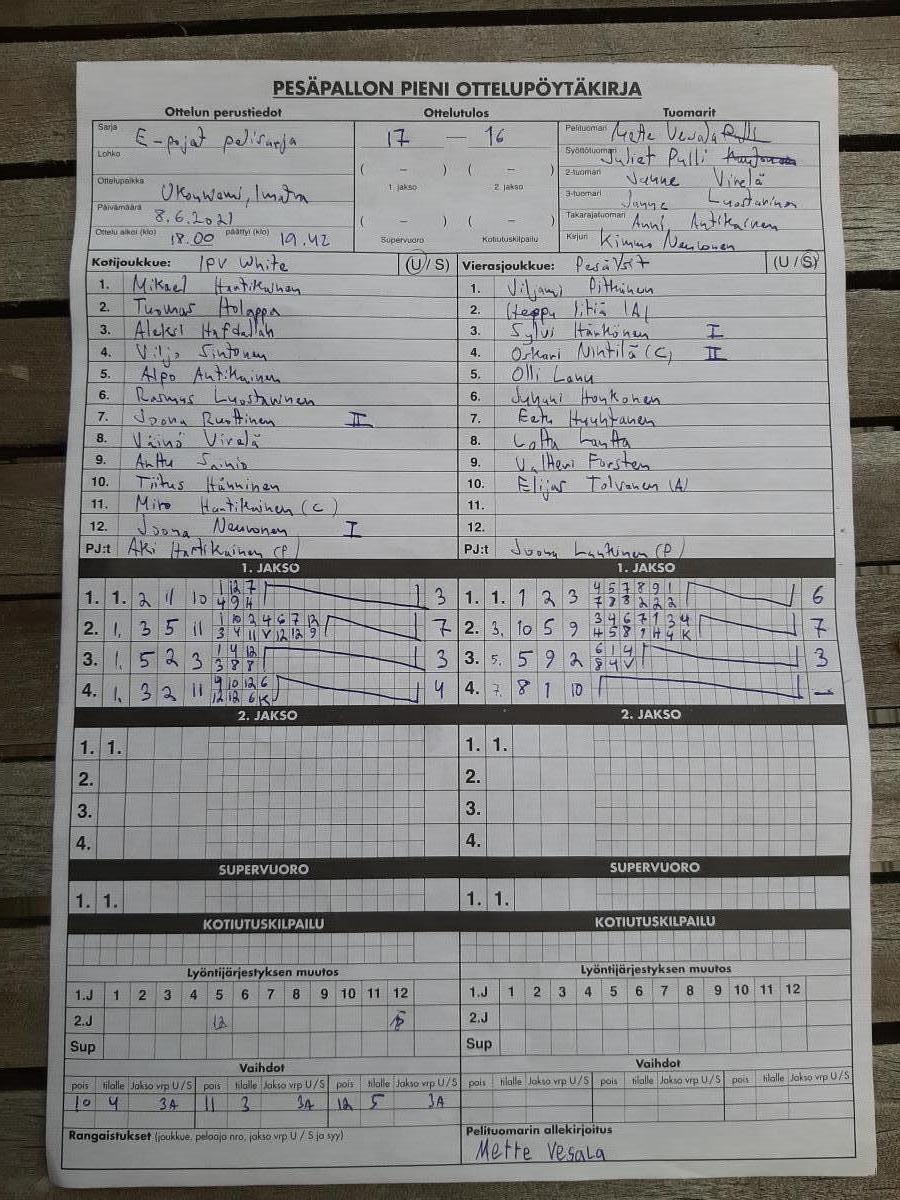 PESÄPALLON PIENI OTTELUPÖYTÄKIRJA
Ottelun perustiedot Ottelutulos Tuomarit
Sarja E-pojat pelisarja
Lohko
Ottelupaikka Ukonniemi, Imatra
Päivämäärä 8.6.2021
Ottelu alkoi (klo) 18.00 päättyi (klo) 19.42
17 — 16
( – ) ( – )
1 jakso 2. jakso
( – ) ( – )
Supervuoro Kotiutuskilpailu
Pelituomari Mette Vesala
Syöttötuomari Juliet Pulli
2-tuomari Janne Virelä
3-tuomari Janne Luostarinen
Takarajatuomari Anni Antikainen
Kirjuri Kimmo Neuvonen
Kotijoukkue: IPV White (U / S) Vierasjoukkue: PesäYsit (U / S)
1. Mikael Hantikainen 1. Viljami Pitkänen
2. Tuomas Holappa 2.
3. Aleksi Hafdallah 3. Sylvi Härkönen I
4. Viljo Sintonen 4. Oskari Nihtilä (C) II
5. Alpo Antikainen 5. Olli Lanu
6. Rasmus Luostarinen 6. Juhani Honkonen
7. Joona Ruottinen II 7. Eetu Huuhtanen
8. Väinö Virelä 8. Lotta Lautta
9. Anttu Sainio 9. Valtteri Forsten
10. Tiitus Hänninen 10. Elijas Tolvanen (A)
11. Miro Hantikainen (C) 11.
12. Joona Neuvonen I 12.
PJ:t Aki Hartikainen (P) PJ:t Joona Lankinen (P)
1. JAKSO 1. JAKSO
1. 1. 2 11 10 1 12 7 3 1. 1. 1 2 3 4 5 7 8 9 1 6
4 9 4 7 8 8 2 2 2
2. 1. 3 5 11 1 10 3 4 6 7 12 7 2. 3. 10 5 9 3 4 6 7 1 3 4 7
3 4 11 V 12 12 9 4 5 8 9 H 4 K
3. 1. 5 2 3 1 4 12 3 3. 5. 5 9 2 6 1 4 3
3 8 8 8 4 V
4. 1. 3 2 11 9 10 12 6 4 4. 7. 8 1 10 –
12 12 6 K
2. JAKSO 2. JAKSO
1. 1. 1. 1.
2. 2.
3. 3.
4. 4.
SUPERVUORO SUPERVUORO
1. 1. 1. 1.
KOTIUTUSKILPAILU KOTIUTUSKILPAILU
Lyöntijärjestyksen muutos Lyöntijärjestyksen muutos
1.J 1 2 3 4 5 6 7 8 9 10 11 12 1.J 1 2 3 4 5 6 7 8 9 10 11 12
2.J 12 2.J
Sup Sup
Vaihdot Vaihdot
pois tilalle Jakso vrp U / S pois tilalle Jakso vrp U / S pois tilalle Jakso vrp U / S pois tilalle Jakso vrp U / S pois tilalle Jakso vrp U / S pois tilalle Jakso vrp U / S
10 4 3A 11 3 3A 12 5 3A
Rangaistukset (joukkue, pelaaja nro, jakso vrp U / S ja syy) Pelituomarin allekirjoitus
Mette Vesala